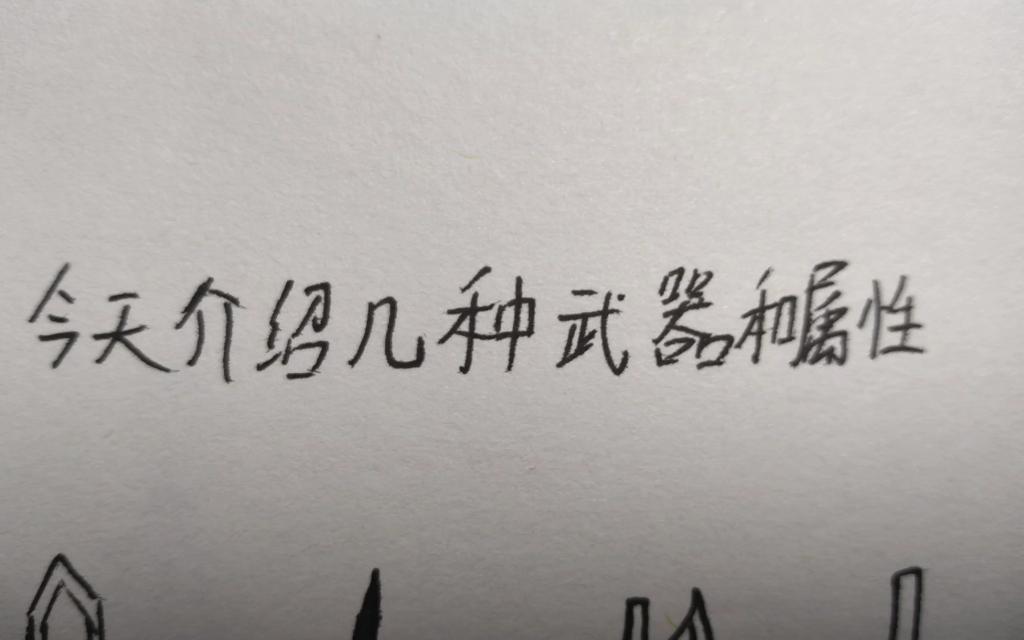 今天介绍几种武器和属性